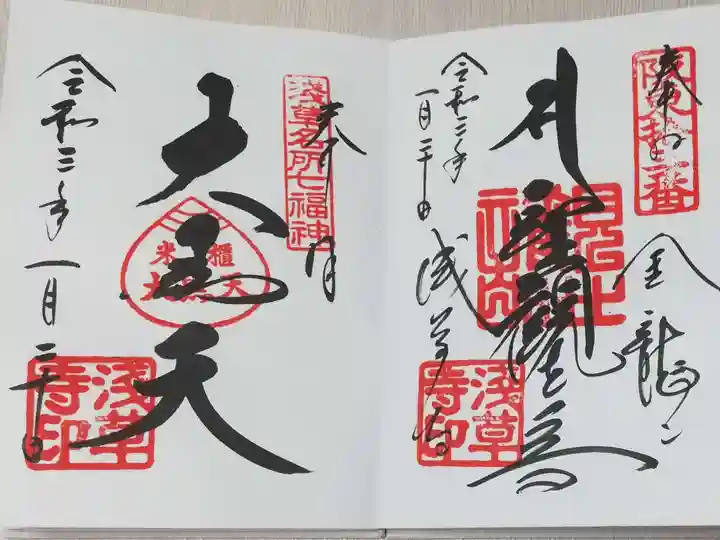 奉拝
坂東十三番
金龍山
聖観世音
令和三年
一月二十日
浅草寺
浅草寺印
浅草名所七福神
奉拝
大黒天
米櫃
大黒天
令和三年一月二十日
浅草寺印